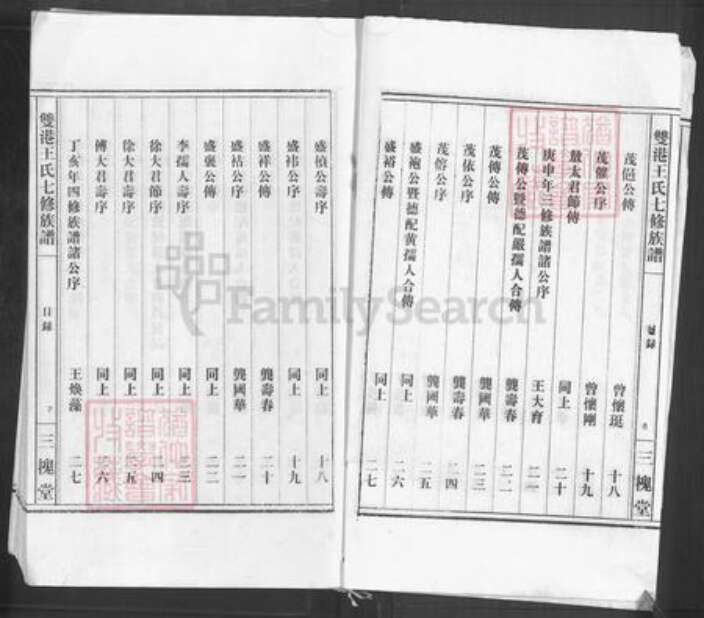 雙港王氏七修族譜 目錄 三槐堂
茂㒸公傳 曾懷珽 十八
茂傕公序 曾懷剛 十九
敖太君節傳 同上 二十
庚申年三修族譜諸公序 王大育 二一
茂傳公暨德配嚴孺人合傳 龔壽春 二二
茂傳公傳 龔國華 二三
茂依公序 龔壽春 二四
茂傛公序 龔國華 二五
盛袍公暨德配黄孺人合傳 同上 二六
盛裕公傳 同上 二七
盛禎公壽序 同上 十八
盛祎公壽序 同上 十九
盛祥公傳 龔壽春 二十
盛祜公序 龔國華 二一
盛襃公傳 同上 二二
李孺人壽序 同上 二三
徐大君節序 同上 二四
徐大君壽序 同上 二五
傅大君壽序 同上 二六
丁亥年四修族譜諸公序 王煥藻 二七
雙港王氏七修族譜 目錄 三槐堂
FamilySearch